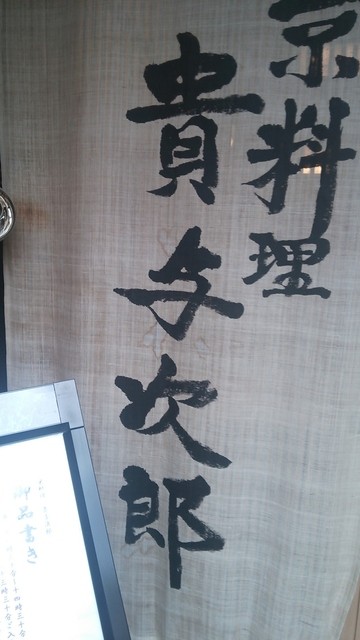 京料理
貴与次郎
御品書き